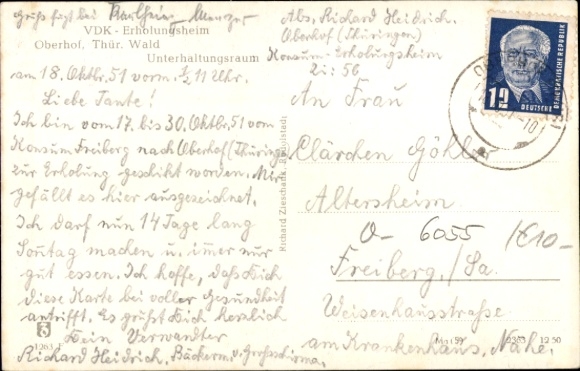 VDK - Erholungsheim
Oberhof, Thür. Wald
Unterhaltungsraum
am 18. Oktbr. 51 vorm. ½ 11 Uhr.
Liebe Tante!
Ich bin vom 17. bis 30. Oktbr. 51 vom
Konsum Freiberg nach Oberhof (Thüringen
zur Erholung geschickt worden. Mir
gefällt es hier ausgezeichnet.
Ich darf nun 14 Tage lang
Sonntag machen u. immer nur
gut essen. Ich hoffe, daß Dich
diese Karte bei voller Gesundheit
antrifft. Es grüßt Dich herzlich
Dein Verwandter
Richard Heidrich, Bäckerm.
1263
Richard Zieschank, Rudolstadt
Abs. Richard Heidrich.
Oberhof (Thüringen)
Konsum-Erholungsheim
Zi: 56
An Frau
Clärchen Göhler
Altersheim
6055 /€10-
Freiberg/Sa.
Weisenhausstraße
am Krankenhaus, Nähe.
12 50
12
DEUTSCHE
DEMOKRATISCHE REPUBLIK